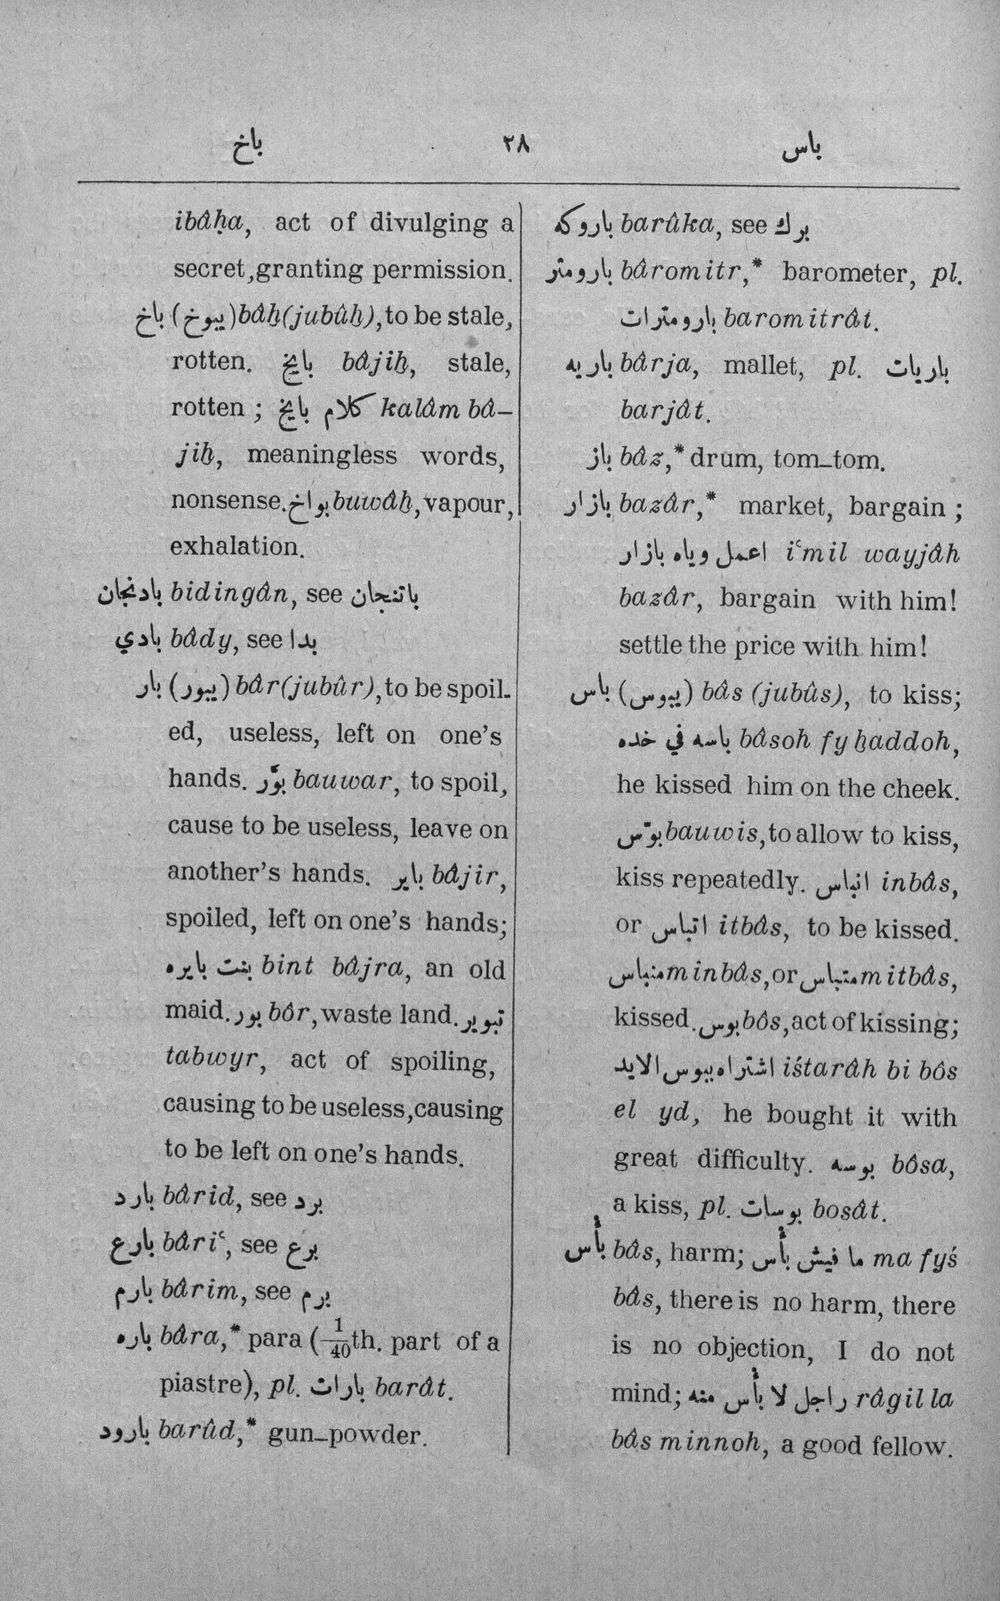 باخ ٢٨ باس
ibâḥa, act of divulging a
secret, granting permission.
باخ (يبوخ) bâḫ (jubûḫ), to be stale,
rotten. بايخ bâjiḫ, stale,
rotten ; كلام بايخ kalâm bâ-
jiḫ, meaningless words,
nonsense. بواخ buwâḫ, vapour,
exhalation.
بادنجان bidingân, see باتنجان
بادي bâdy, see بدا
بار (يبور) bâr (jubûr), to be spoil-
ed, useless, left on one's
hands. بوَّر bauwar, to spoil,
cause to be useless, leave on
another's hands. باير bâjir,
spoiled, left on one's hands;
بنت بايره bint bâjra, an old
maid. بور bôr, waste land. تبوير
tabwyr, act of spoiling,
causing to be useless, causing
to be left on one's hands.
بارد bârid, see برد
بارع bâriʿ, see برع
بارم bârim, see برم
باره bâra,* para (1/40th. part of a
piastre), pl. بارات barât.
بارود barûd,* gun-powder.
باروكه barûka, see برك
بارومتر bâromitr,* barometer, pl.
بارومترات baromitrât.
باريه bârja, mallet, pl. باريات
barjât.
باز bâz,* drum, tom-tom.
بازار bazâr,* market, bargain ;
اعمل وياه بازار iʿmil wayjâh
bazâr, bargain with him!
settle the price with him!
باس (يبوس) bâs (jubûs), to kiss;
باسه في خده bâsoh fy ḫaddoh,
he kissed him on the cheek.
بوّس bauwis, to allow to kiss,
kiss repeatedly. انباس inbâs,
or اتباس itbâs, to be kissed.
منباس minbâs, or متباس mitbâs,
kissed. بوس bôs, act of kissing;
اشتراه ببوس الايد iśtarâh bi bôs
el yd, he bought it with
great difficulty. بوسه bôsa,
a kiss, pl. بوسات bosât.
بأس bâs, harm; ما فيش بأس ma fyś
bâs, there is no harm, there
is no objection, I do not
mind; راجل لا بأس منه râgil la
bâs minnoh, a good fellow.